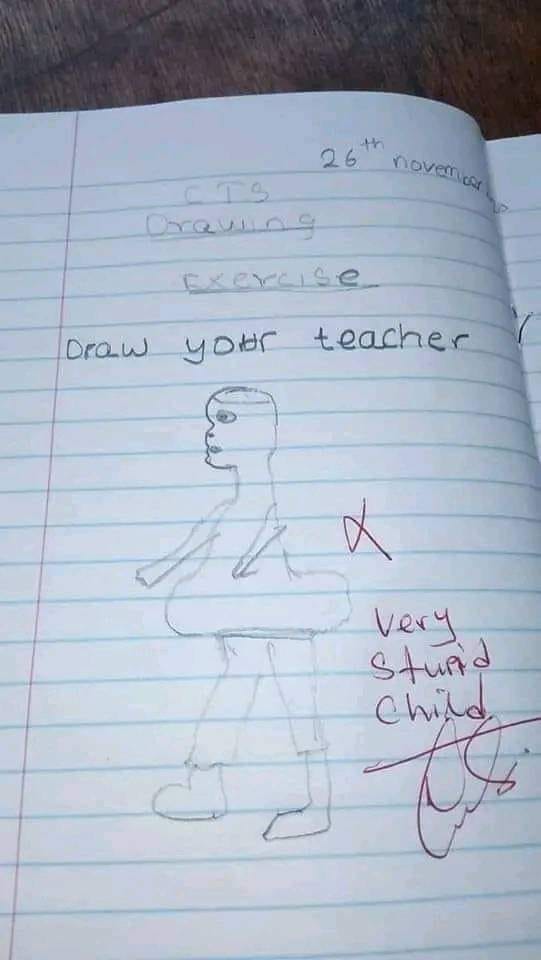 26th november
CTS
Drawing
Exercise
Draw your teacher
very
Stupid
Child